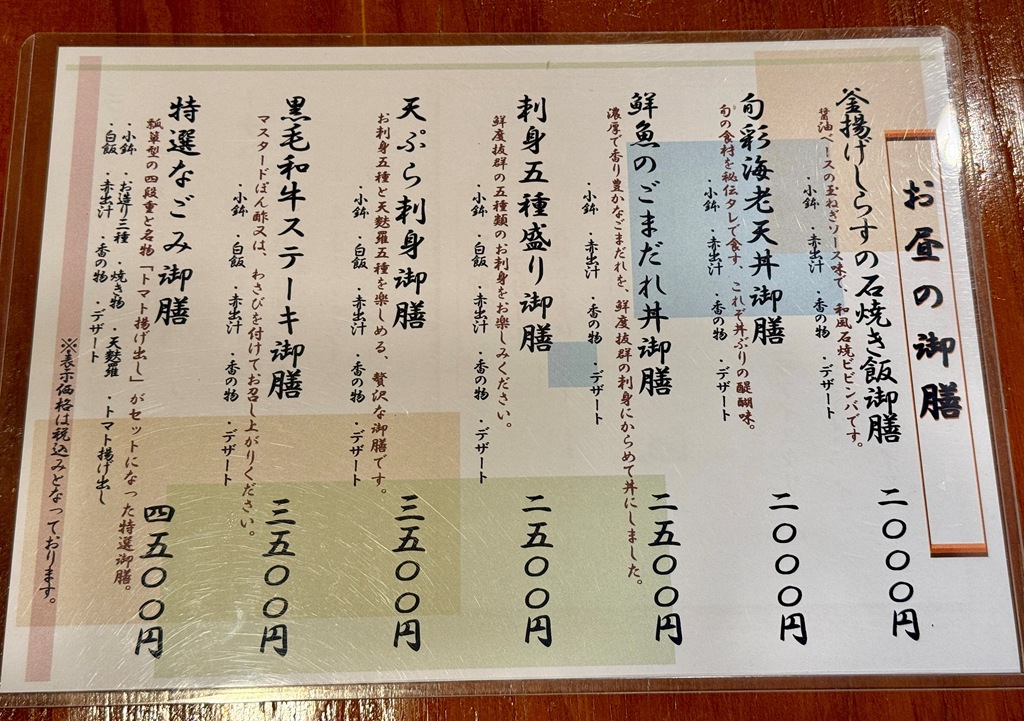 お昼の御膳
釜揚げしらすの石焼き飯御膳
二〇〇〇円
醤油ベースの玉ねぎソース味で、和風石焼ビビンバです。
・小鉢　・赤出汁　・香の物　・デザート
旬彩海老天丼御膳
二〇〇〇円
旬の食材を秘伝タレで食す、これぞ丼ぶりの醍醐味。
・小鉢　・赤出汁　・香の物　・デザート
鮮魚のごまだれ丼御膳
二五〇〇円
濃厚で香り豊かなごまだれを、鮮度抜群の刺身にからめて丼にしました。
・小鉢　・赤出汁　・香の物　・デザート
刺身五種盛り御膳
二五〇〇円
鮮度抜群の五種類のお刺身をお楽しみください。
・小鉢　・白飯　・赤出汁　・香の物　・デザート
天ぷら刺身御膳
三五〇〇円
お刺身五種と天麩羅五種を楽しめる、贅沢な御膳です。
・小鉢　・白飯　・赤出汁　・香の物　・デザート
黒毛和牛ステーキ御膳
三五〇〇円
マスタードぽん酢又は、わさびを付けてお召し上がりください。
・小鉢　・白飯　・赤出汁　・香の物　・デザート
特選なごみ御膳
四五〇〇円
瓢箪型の四段重と名物「トマト揚げ出し」がセットになった特選御膳。
・小鉢　・お造り三種　・焼き物　・天麩羅　・トマト揚げ出し
・白飯　・赤出汁　・香の物　・デザート
※表示価格は税込みとなっております。